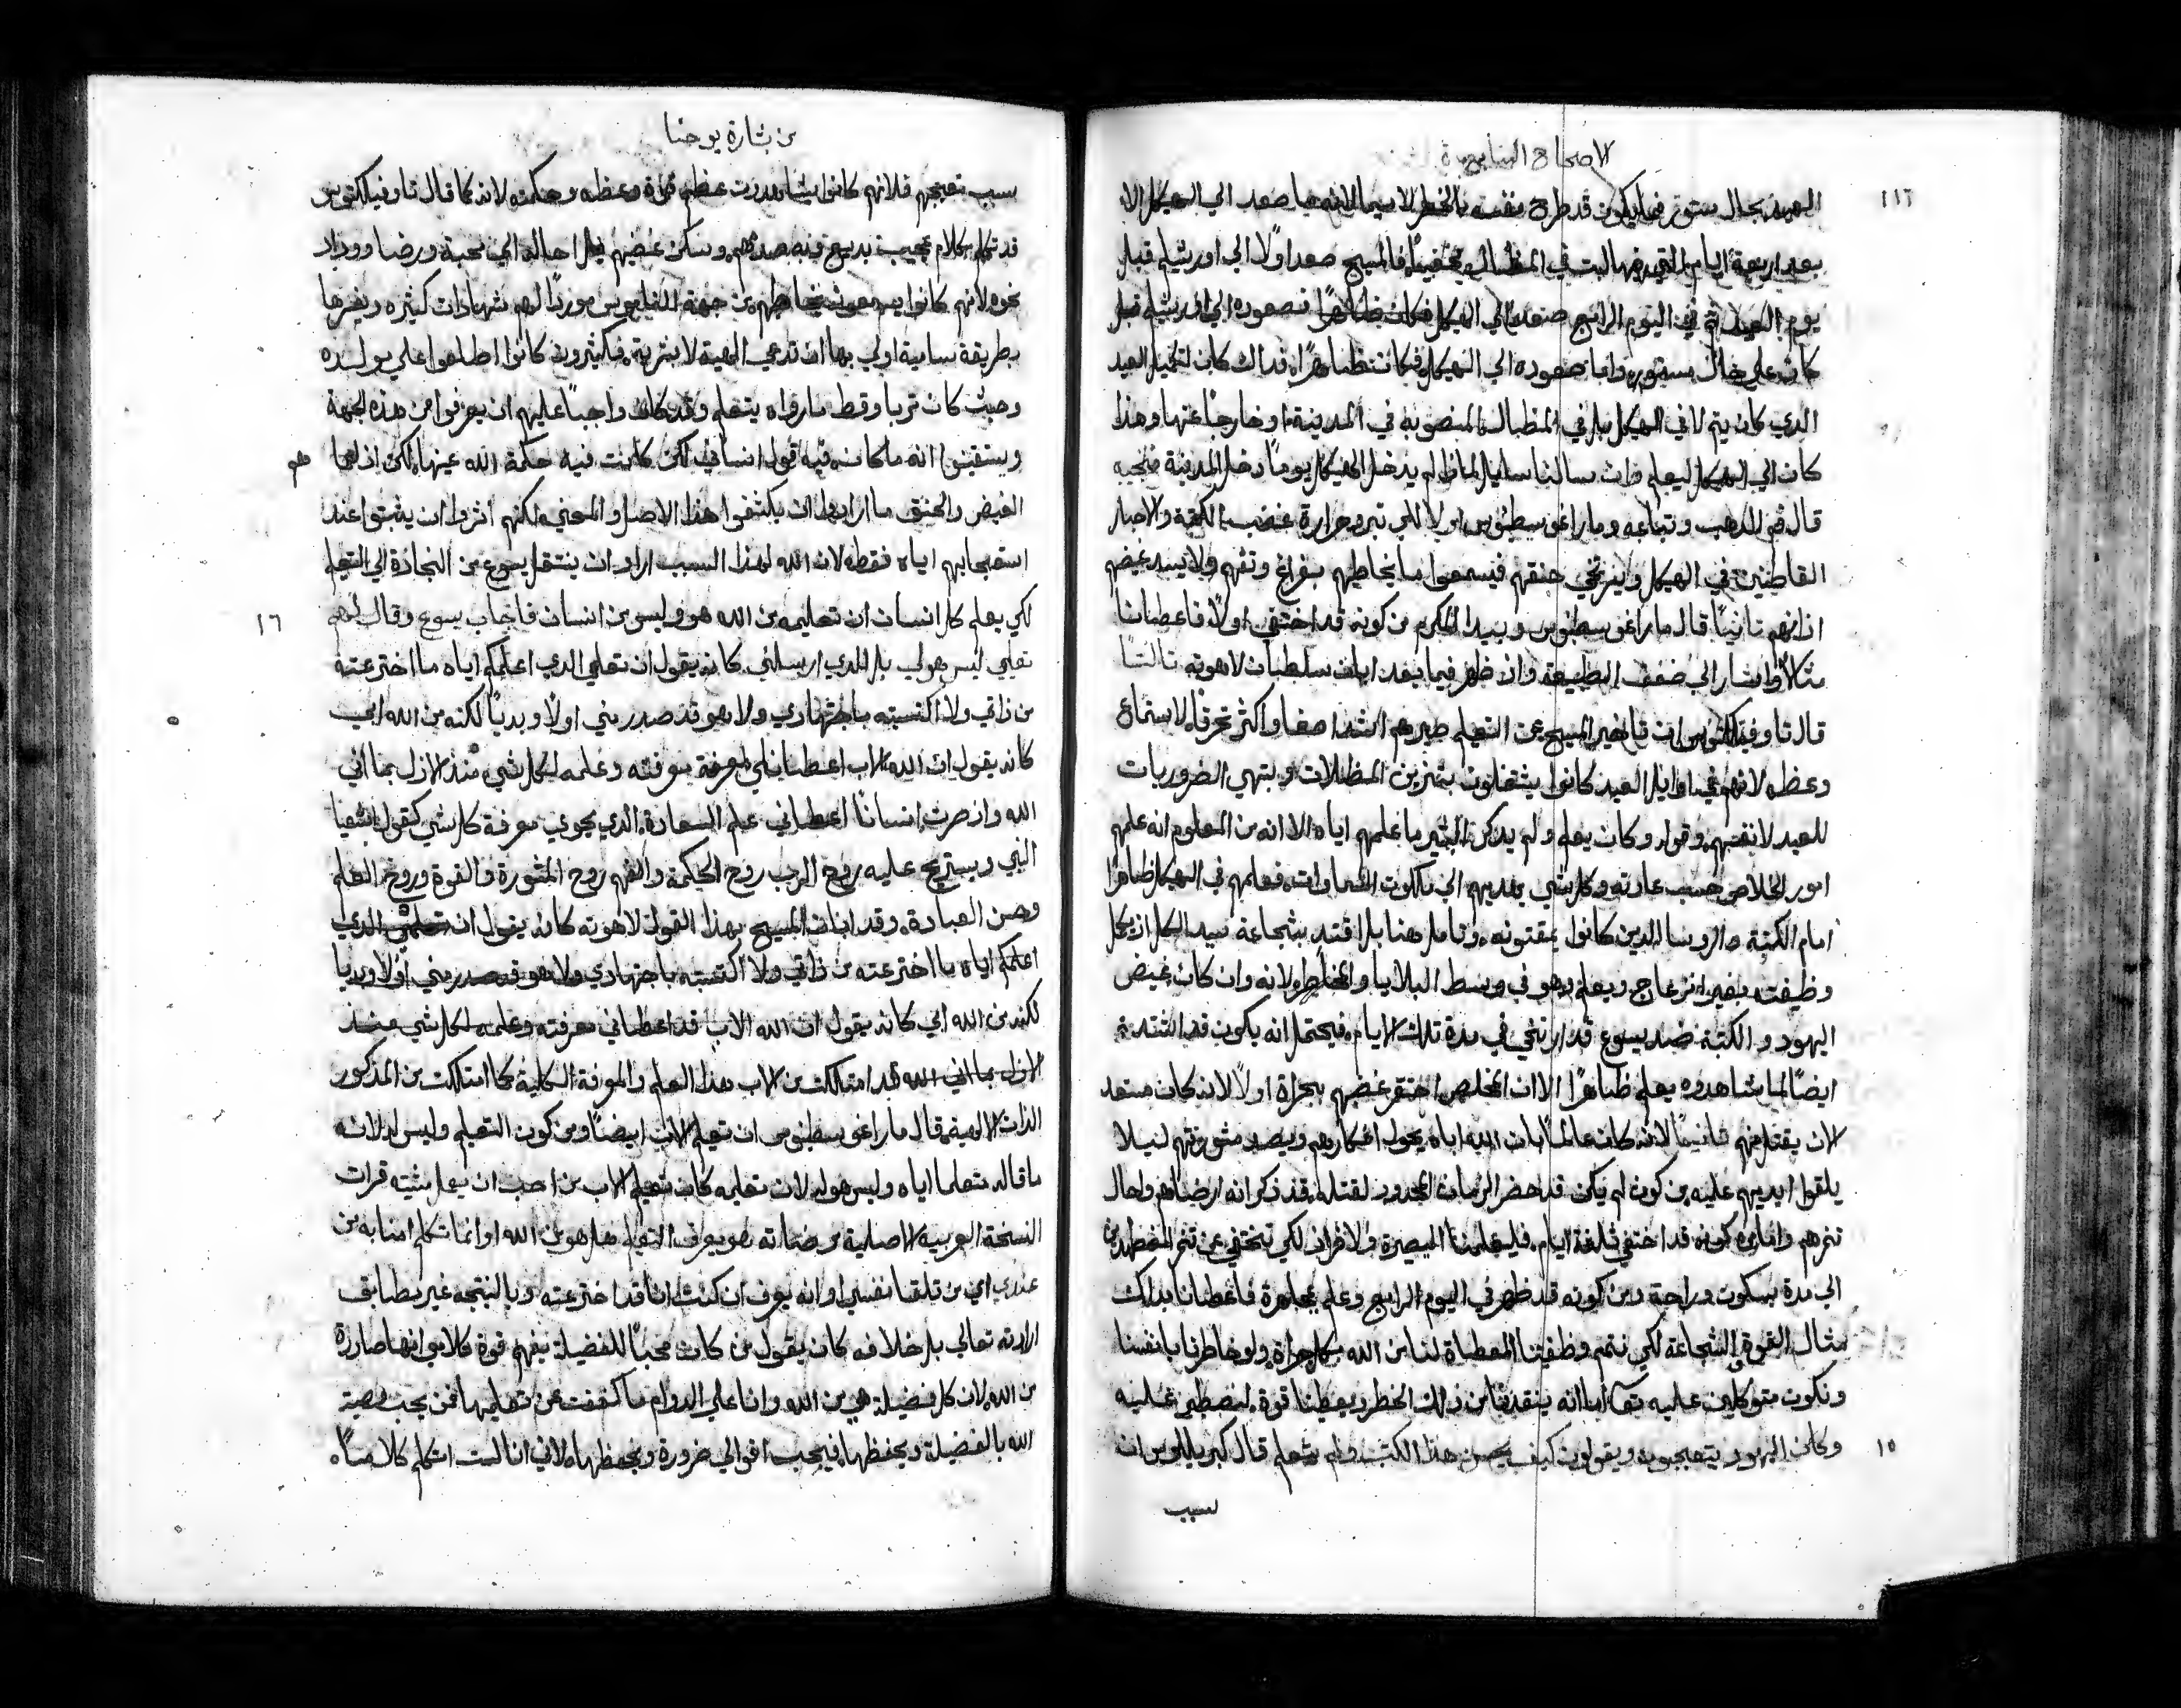 الاصحاح السابع
١١٦
العيد بحال مستور فما يكون قد طرح نفسه بالخطر لا سيما لانه ما صعد الي الهيكل الا
بعد اربعة ايام التي فيها لبث في المظال مختفيًا فالمسيح صعد اولًا الي اورشليم قبل
يوم العيد ثم في اليوم الرابع صعد الي الهيكل فكان ظاهرًا فصعوده الي اورشليم قبل
كان علي حال مستور واما صعوده الي الهيكل فكان ظاهرًا فذاك كان لتكميل العيد
الدي كان يتم لا في الهيكل بل في المظال المنصوبه في المدينة او خارجًا عنها وهذا
كان الي الهيكل ليعلم وان سالنا سايل لماذا لم يدخل الهيكل يوم دخل المدينة فنجيبه
قال فم الدهب وتباعه وماراغوسطينوس اولًا لكي تبرد حرارة غضب الكهنة والاحبار
القاطنين في الهيكل ويرتخي حنقهم فيسمعوا ما يخاطبهم بفراغ وتفهم ولا يسد غيضهم
اذانهم ثانيًا قال ماراغوسطينوس وبيدا المكرم من كونه قد اختفي اولًا فاعطانا
مثالًا واشار الي ضعف الطبيعة وان ظهر فيما بعد ابان سلطان لاهوته ثالثًا
قال تاوفيلكتوس ان تاخير المسيح عن التعليم صيرهم اشد اصغا واكثر تحرقًا لاستماع
وعظه لانهم في اوايل العيد كانوا يشتغلون بتمزين المظلات وبتهي الضروريات
للعيد لانفسهم وقوله وكان يعلم ولم يدكر البشير ما علمهم اياه الا انه من المعلوم انه علمهم
امور الخلاص حسب عادته وكل شي يهديهم الي ملكوت السماوات فعلمهم في الهيكل ظاهرًا
امام الكتبة والروسا الدين كانوا يمقتونه وتامل هنا بل اقتد بشجاعة سيد الكل ان يكمل
وظيفته بغير انزعاج ويعلم وهو في وسط البلايا والمخاطر لانه وان كان غيض
اليهود والكتبة ضد يسوع قد ارتخي في مدة تلك الايام فيحتمل انه يكون قد اشتد
ايضًا لما شاهدوه يعلم ظاهرًا الا ان المخلص احتقر غضبهم بجراة اولًا لانه كان مستعد
لان يقتل منهم ثانيًا لانه كان عالمًا بان الله اباه يحول افكارهم ويصد مشورتهم ليلا
يلقوا ايديهم عليه من كون لم يكن قد حضر الزمان المحدود لقتله قد ذكر انه ارضاهم واحال
تنمرهم واما من كونه قد اختفي ثلثة ايام فليعلمنا البصيرة والافراز لكي نختفي عن تنمر المضطهدين
الي مدة بسكوت وراحة ومن كونه قد ظهر في اليوم الرابع وعلم بمجاهرة فاعطانا بدلك
مثال القوة والشجاعة لكي نتمم وظيفتنا المعطاة لنا من الله بكل جراة ولو خاطرنا بانفسنا
ونكون متوكلين عليه تعالي اما انه ينقدنا من ذلك الخطر ويعطينا قوة لنصطبر عليه
١٥ وكان اليهود يتعجبون ويقولون كيف يحسن هذا الكتب ولم يتعلم قال كيرلس ان
لسبب
من بشارة يوحنا
سبب تعجبهم فلانهم كانوا يشاهدون عظم قوة وعظه وحكمته لانه كما قال تاوفيلكتوس
قد تكلم بكلام عجيب بديع فيه صدهم وسكن غضبهم بل احاله الي محبة ورضا ووداد
نحوه لانهم كانوا يسمعونه يخاطبهم من جهة الناموس موردًا لهم شهادات كثيره ويفسرها
بطريقة سامية اولي بها ان تدعي الهية لا بشرية فكثيرون كانوا اطلعوا علي مولده
وحيث كان تربا وقط ماراوه يتعلم وقد كان واجبًا عليهم ان يعرفوا من هذه الجهة
ويستيقنوا انه ما كان فيه قول انساني لكن كانت فيه حكمة الله عينها لكن اذ اعماهم
الغيض والحنق ما ارادوا ان يكتشفوا هذا الاصل والمعني لكنهم اثروا ان يثبتوا عند
استعجابهم اياه فقط لان الله لهذا السبب اراد ان ينتقل يسوع من النجارة الي التعليم
١٦ لكي يعلم كل انسان ان تعليمه من الله هو وليس من انسان فاجاب يسوع وقال لهم
تعليمي ليس هو لي بل للدي ارسلني كانه يقول ان تعليمي الدي اعلمكم اياه ما اخترعته
من ذاتي ولا اكتسبته باجتهادي ولا هو قد صدر مني اولًا وبديًا لكنه من الله ابي
كانه يقول ان الله الاب اعطاني معرفة معرفته وعلمه لكل شي منذ الازل بما اني
الله واذ صرت انسانًا اعطاني علم السعادة الدي يحوي معرفة كل شي كقول اشعيا
النبي ويستريح عليه روح الرب روح الحكمة والفهم روح المشورة والقوة وروح العلم
وحسن العبادة وقد ابان المسيح بهذا القول لاهوته كانه يقول ان تعليمي الدي
اعلمكم اياه ما اخترعته من ذاتي ولا اكتسبته باجتهادي ولا هو قد صدر مني اولًا وبديا
لكنه من الله ابي كانه يقول ان الله الاب قد اعطاني معرفته وعلمه لكل شي منذ
الازل بما اني الله قد امتلكت من الاب هذا العلم والمعرفة الكلية كما امتلكت من المذكور
الذات الالهية قال ماراغوسطينوس ان تعليم الاب ايضًا ومن كون التعليم وليس له لانه
ما قاله متعلما اياه وليس هو له لان تعليمه كان تعليم الاب من احب ان يعمل مشيته قرات
النسخة العربيه الاصلية مرضاته هو يعرف التعليم هل هو من الله او انما تكلم انا به من
عندي اي من تلقا نفسي او انه يعرف ان كنت انا قد اخترعته وبالنتيجه غير مطابق
ارادته تعالي بل خلافه كانه يقول من كان محبًا للفضيلة يفهم قوة كلامي انها صادرة
من الله لان كل فضيلة هي من الله وانا علي الدوام ما كففت عن تعليمها فمن يحب وصية
الله بالفضيلة ويحفظها فيحب اقوالي ضرورة ويحفظها لاني انا لست اتكلم كلامًا